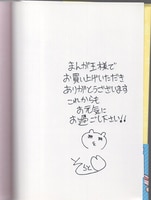 まんが王様で
お買い上げいただき
ありがとうございます
これからも
お元気に
お過ごし下さい!!